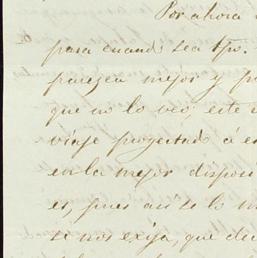 Por ahora
para cuando sea tpo.
paresca mejor y p
que no lo veo, este
viaje proyectado á es
en la mejor disposi
es, pues asi se lo m
se nos exija, que de